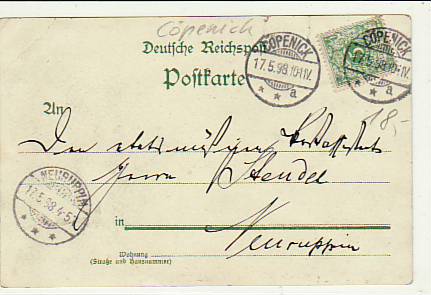 Cöpenick
Deutsche Reichspost
Postkarte
CÖPENICK
17.5.98.10-11V.
* * a
CÖPENICK
17.5.98.10-11V.
* * a
18,-
An
Den etatsmäßigen
Herrn Stendel
NEURUPPIN
17.5.98
* * *
in Neuruppin
Wohnung
(Straße und Hausnummer)